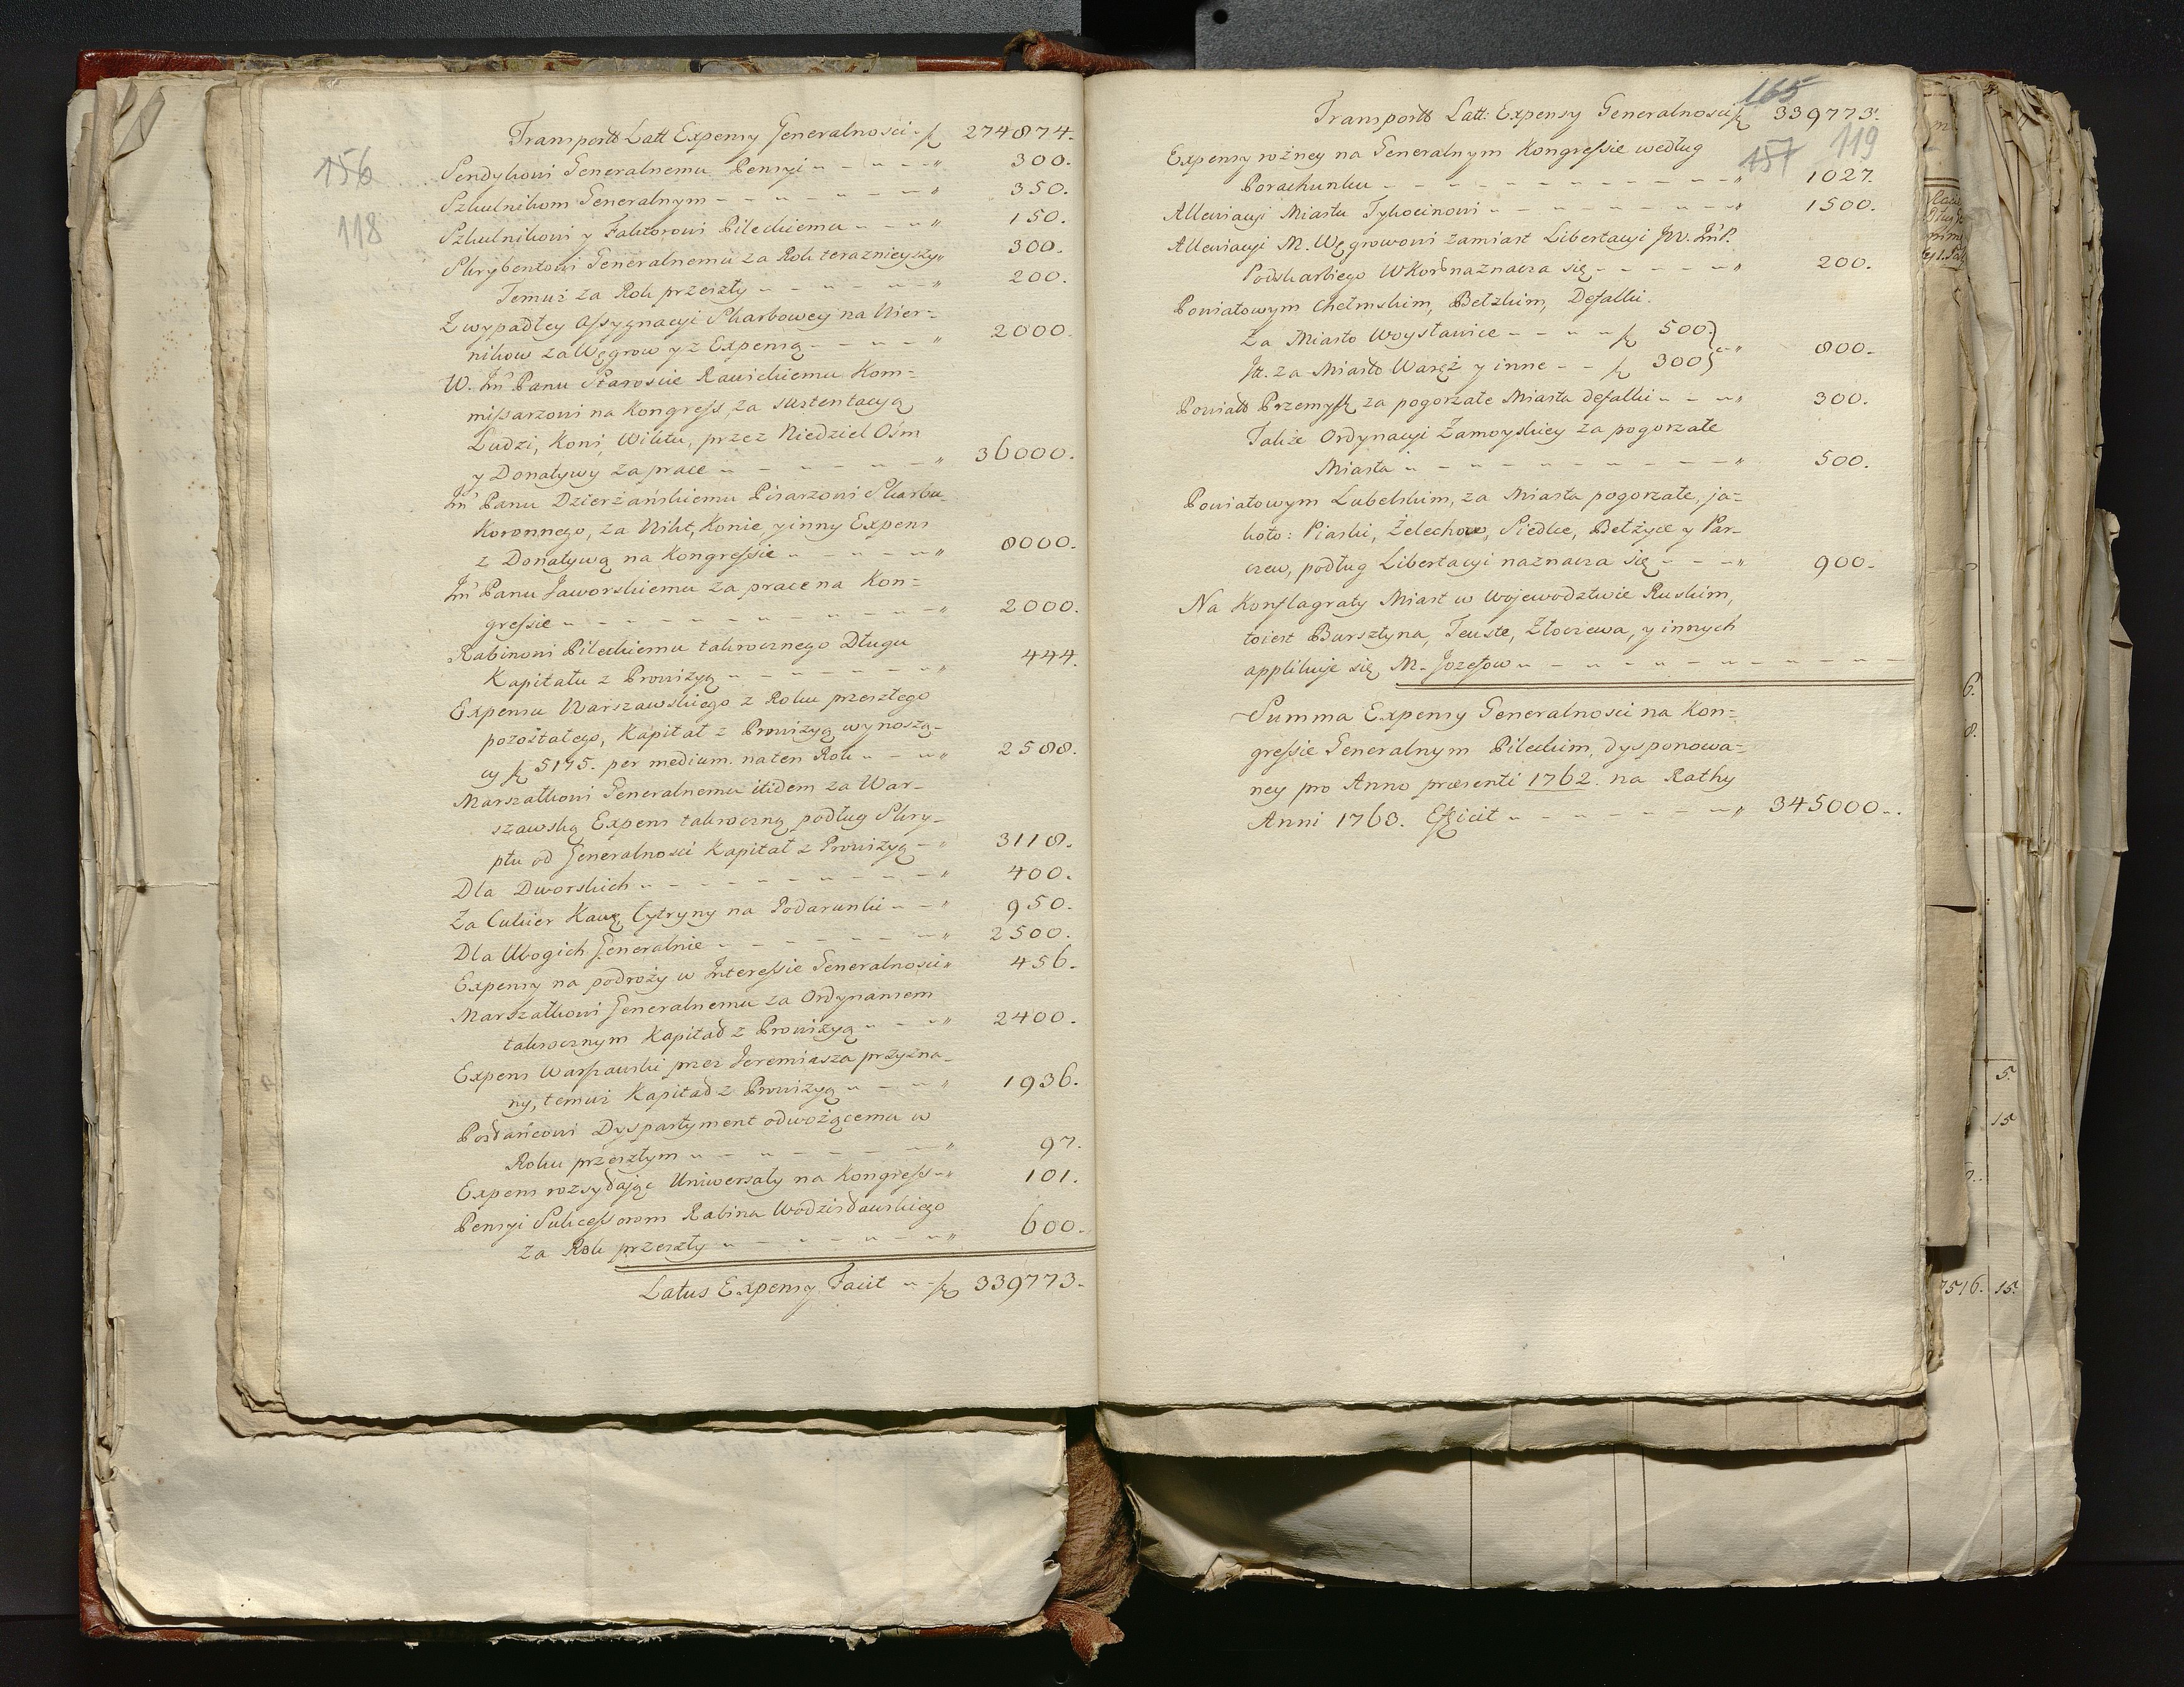 156
118
Transportt Latt Expensy Generalnosci - fl 274874.
Sendykowi Generalnemu Pensyi 300.
Szkulnikom Generalnym 350.
Szkulnikowi y Faktorowi Pileckiemu 150.
Skrybentowi Generalnemu za Rok teraznieyszy 300.
Temuż za Rok przeszły 200.
Z wypadłey Assygnacyi Skarbowey na Nier-
nikow za Węgrow y z Expensą 2000.
W. Jmć Panu Staroscie Rawickiemu Kom-
missarzowi na Kongress, za sustentacyą
Ludzi, Koni, Wiktu, przez Niedziel Ośm
y Donatywy za prace 36000.
Jmć Panu Dzierżańskiemu Pisarzowi Skarbu
Koronnego, za Wikt, Konie y inny Expens
z Donatywą na Kongressie 8000.
Jmć Panu Jaworskiemu za prace na Kon-
gressie 2000.
Rabinowi Pileckiemu takrocznego Długu
Kapitału z Prowizyą 444.
Expensu Warszawskiego z Roku przeszłego
pozostałego, Kapitał z Prowizyą wynoszą-
cy fl 5175. per medium na ten Rok 2588.
Marszałkowi Generalnemu itidem za War-
szawską Expens takroczną podług Skry-
ptu od Generalnosci Kapitał z Prowizyą 3118.
Dla Dworskich 400.
Za Cukier Kawę Cytryny na Podarunki 950.
Dla Ubogich Generalnie 2500.
Expensy na podroży w Interessie Generalnosci 456.
Marszałkowi Generalnemu za Ordynansem
takrocznym Kapitał z Prowizyą 2400.
Expens Warszawski przez Jeremiasza przyzna-
ny, temuż Kapitał z Prowizyą 1936.
Posłańcowi Dyspartyment odwożącemu w
Roku przeszłym 97.
Expens rozsyłając Uniwersały na Kongress 101.
Pensyi Sukcessorom Rabina Wodzisławskiego
za Rok przeszły 600.
Latus Expensy Facit - fl 339773.
165
157
119
Transportt Latt: Expensy Generalnosci fl 339773.
Expensy rożney na Generalnym Kongressie według
Porachunku 1027.
Allewiacyi Miastu Tykocinowi 1500.
Allewiacyi M. Węgrowowi zamiast Libertacyi JW. JmP.
Podskarbiego WKor naznacza się 200.
Powiatowym Chełmskim, Bełzkim, Defalki.
Za Miasto Woysławice - fl 500.
Itt. za Miasto Waręż y inne - fl 300 800.
Powiatt Przemysk za pogorzałe Miasta defalki 300.
Także Ordynacyi Zamoyskiey za pogorzałe
Miasta 500.
Powiatowym Lubelskim, za Miasta pogorzałe, ja-
koto: Piaski, Żelechow, Siedlce, Bełżyce y Par-
czew, podług Libertacyi naznacza się 900.
Na Konflagraty Miast w Wojewodztwie Ruskim,
toiest Bursztyna, Teuste, Złoczewa, y innych
applikuje się M. Jozefow
Summa Expensy Generalnosci na Kon-
gressie Generalnym Pileckim, dysponowa-
ney pro Anno præsenti 1762. na Rathy
Anni 1763. Efficit 345000.
5.
15
7516. 15.